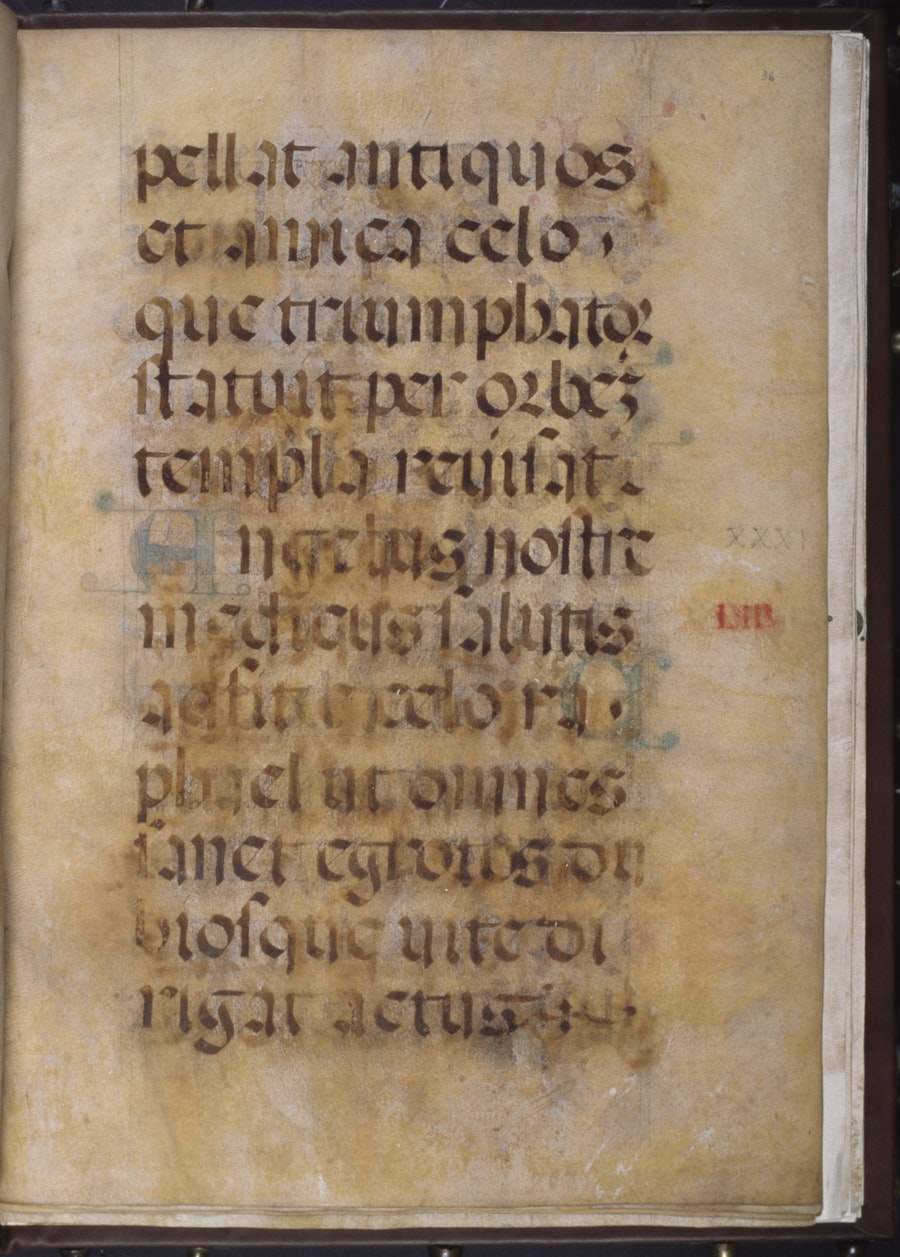 36
pellat antiquos
et amica celo.
que triumphator
statuat per orbeʒ
templa reuisat.
Angelus nostre
medicus salutis
assit e celo ra
phael ut omnes
sanet egrotos du
biosque uite di
rigat actus
XXXI